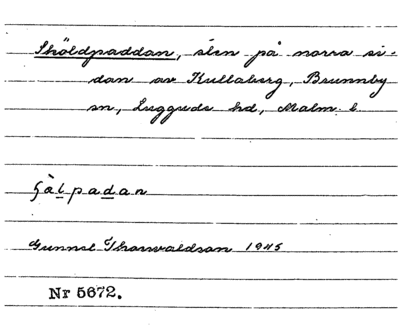 Sköldpaddan, sten på norra si-
dan av Kullaberg, Brunnby
sn, Luggude hd, Malm. l.
ʃàlpadan
Gunnel Thorvaldson 1945
Nr 5672.